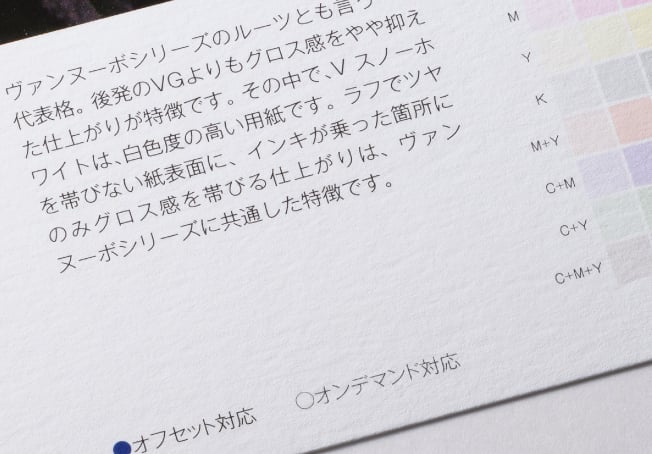 ヴァンヌーボシリーズのルーツとも言う
代表格。後発のVGよりもグロス感をやや抑え
た仕上がりが特徴です。その中で、V スノーホ
ワイトは、白色度の高い用紙です。ラフでツヤ
を帯びない紙表面に、インキが乗った箇所に
のみグロス感を帯びる仕上がりは、ヴァン
ヌーボシリーズに共通した特徴です。
M
Y
K
M+Y
C+M
C+Y
C+M+Y
●オフセット対応
○オンデマンド対応